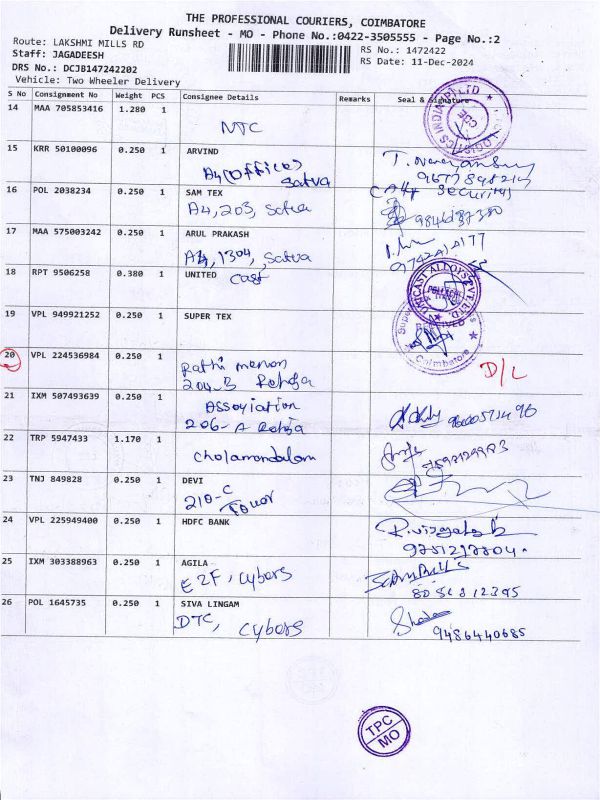 THE PROFESSIONAL COURIERS, COIMBATORE
Delivery Runsheet - MO - Phone No.:0422-3505555 - Page No.:2
Route: LAKSHMI MILLS RD
RS No.: 1472422
Staff: JAGADEESH
RS Date: 11-Dec-2024
DRS No.: DCJB147242202
Vehicle: Two Wheeler Delivery
S No Consignment No Weight PCS Consignee Details Remarks Seal & Signature
14 MAA 705853416 1.280 1
NTC
15 KRR 50100096 0.250 1 ARVIND
A4 (Office)
Satva
16 POL 2038234 0.250 1 SAM TEX
A4, 203, Satva
17 MAA 575003242 0.250 1 ARUL PRAKASH
A4, 1304, Satva
18 RPT 9506258 0.380 1 UNITED
Cast
UNICAST ALLOYS PVT. LTD.
19 VPL 949921252 0.250 1 SUPER TEX
Coimbatore
20 VPL 224536984 0.250 1
Rathi menon
204-B
D/L
21 IXM 507493639 0.250 1
Association
206-A
22 TRP 5947433 1.170 1
Cholamandalam
23 TNJ 849828 0.250 1 DEVI
210-C
Tower
24 VPL 225949400 0.250 1 HDFC BANK
25 IXM 303388963 0.250 1 AGILA
E2F, Cybers
26 POL 1645735 0.250 1 SIVA LINGAM
DTC, Cybers
9486440685
TPC
MO